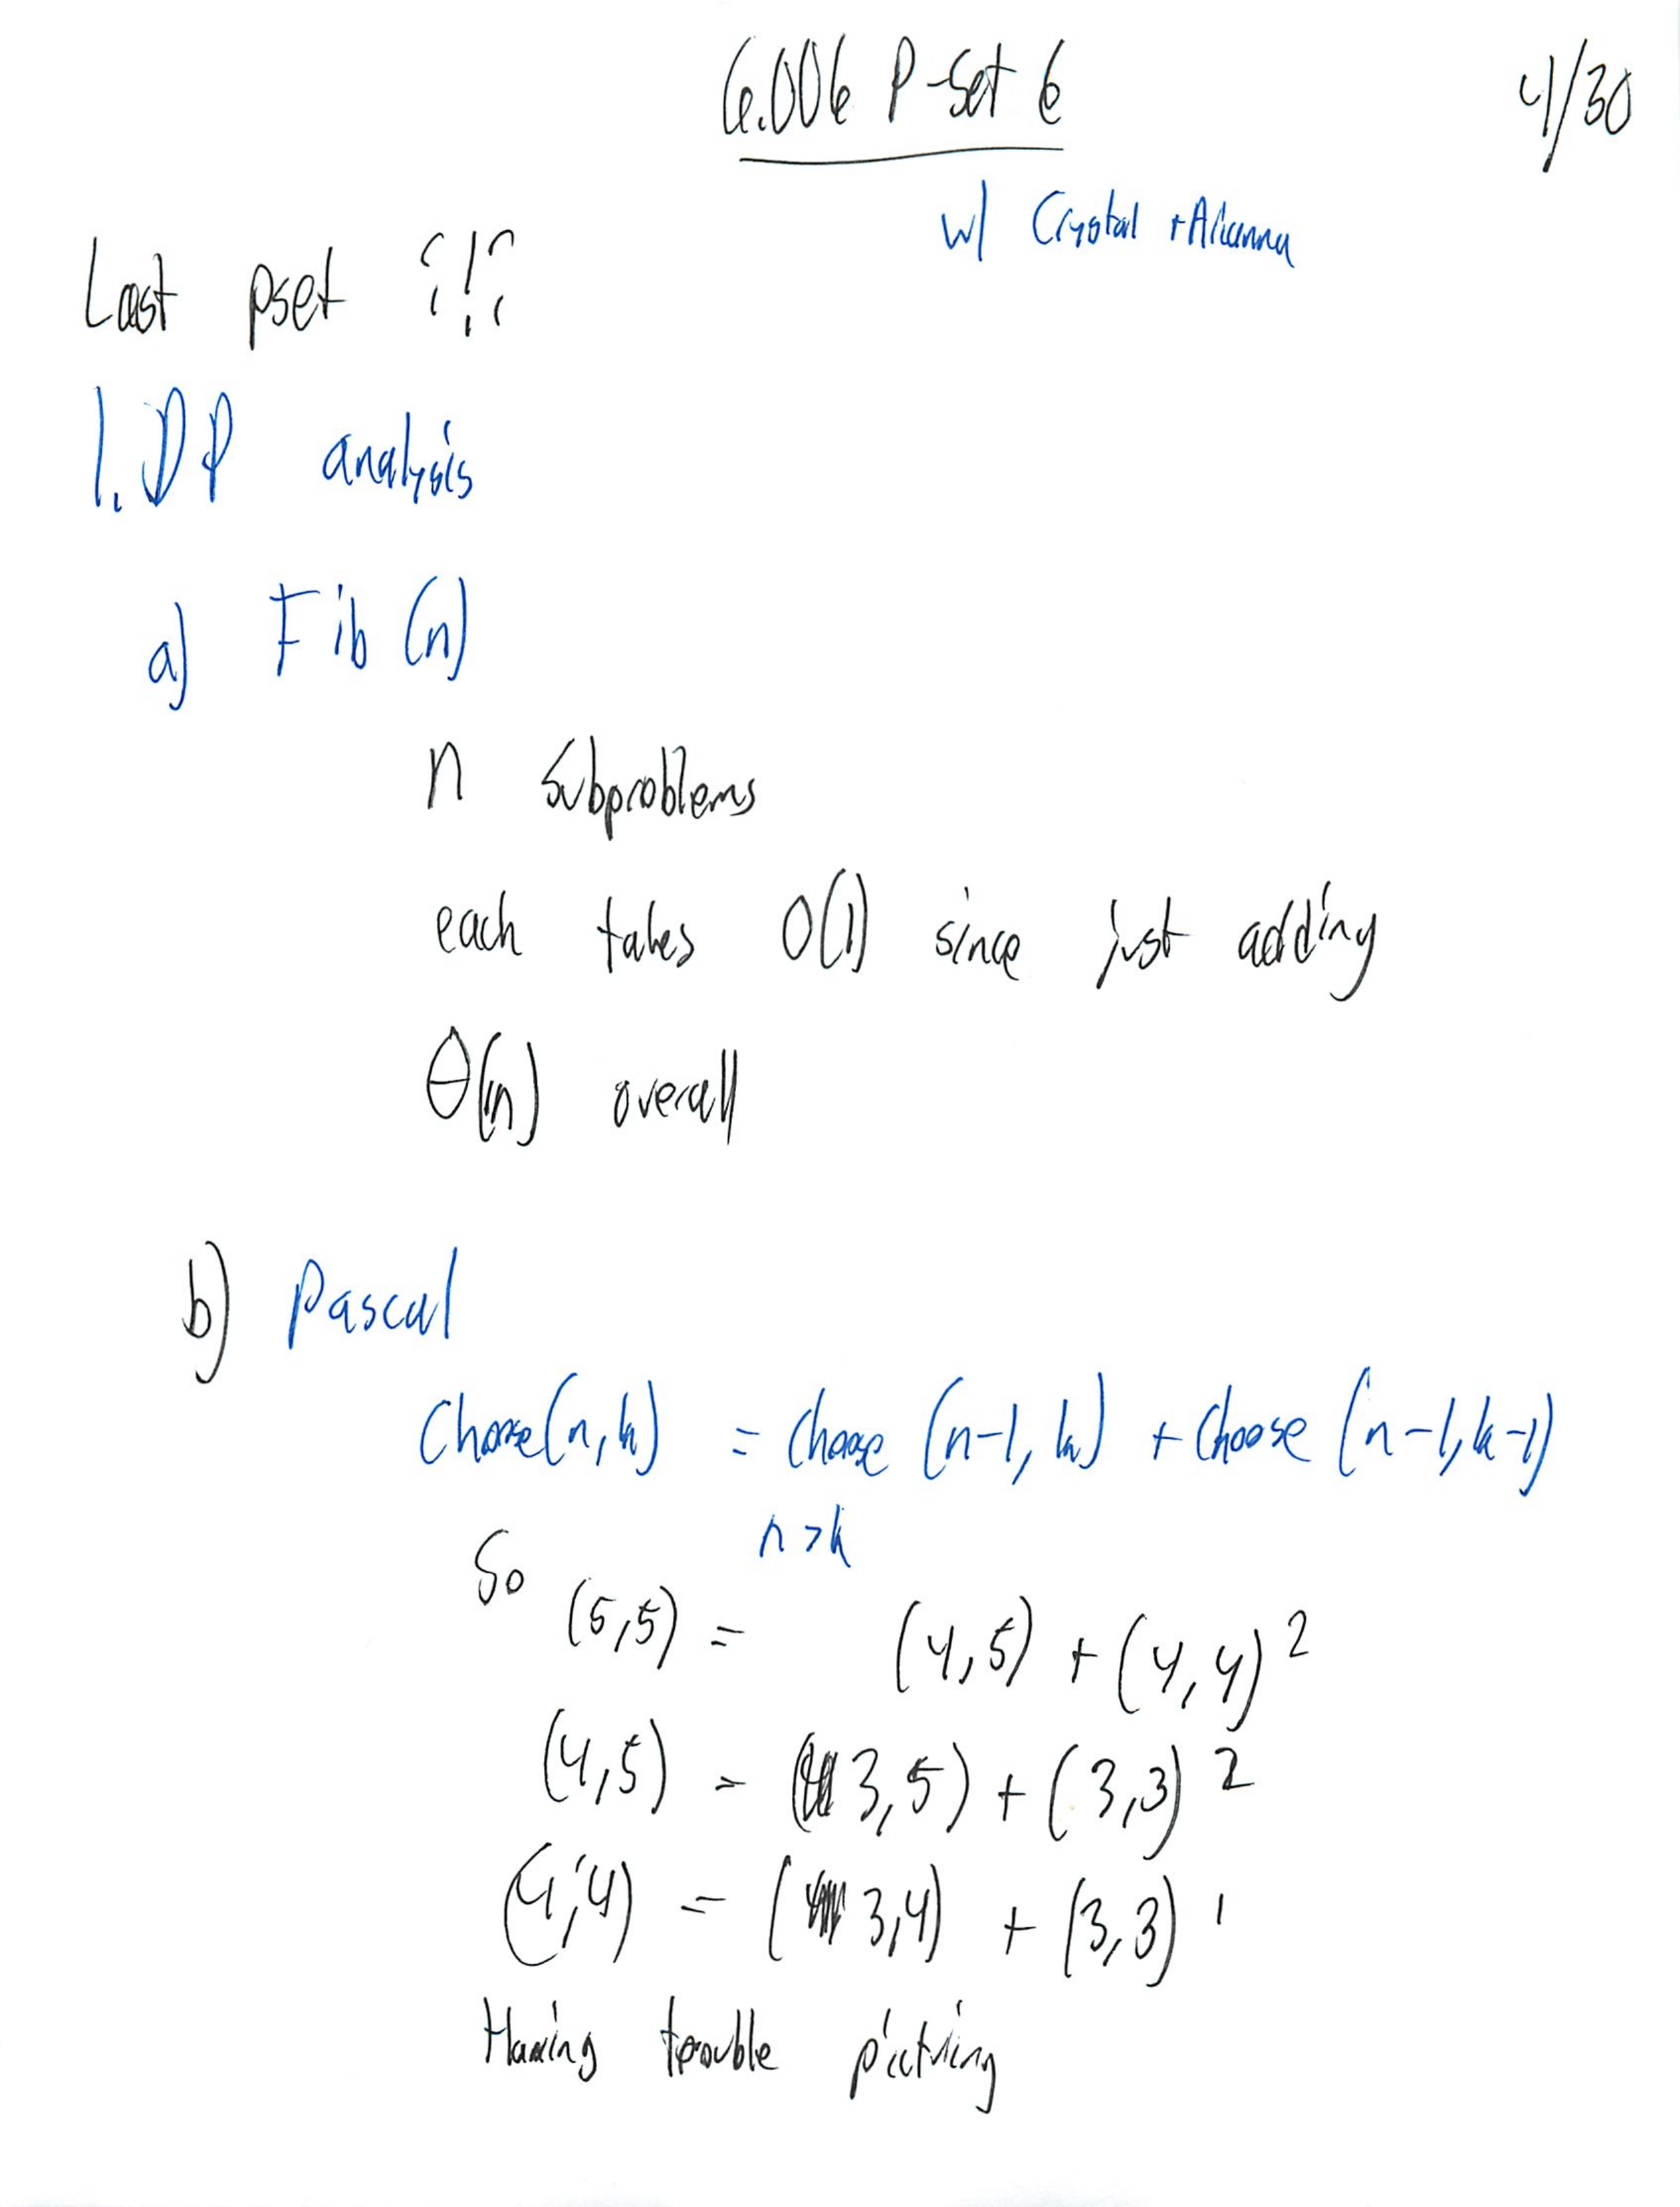 6.006 P-Set 6
4/30
w/ Crystal + Arianna
Last pset
1. DP analysis
a) Fib (n)
n subproblems
each takes O(1) since just adding
θ(n) overall
b) Pascal
Choose(n,k) = Choose (n-1, k) + Choose (n-1, k-1)
n > k
So
(5,5) = (4,5) + (4,4) 2
(4,5) = (3,5) + (3,3) 2
(4,4) = (3,4) + (3,3) 1
Having trouble picturing